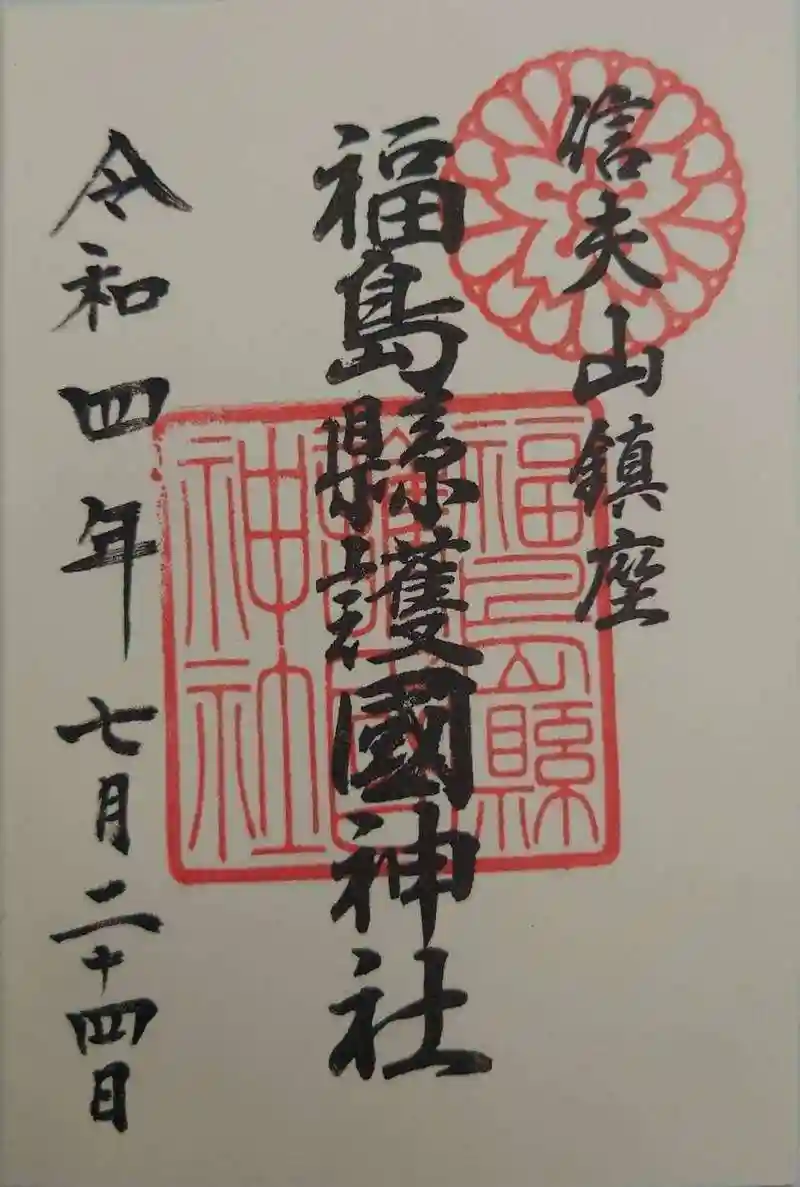 信夫山鎮座
福島縣護國神社
福島縣
護國
神社
令和四年七月二十四日